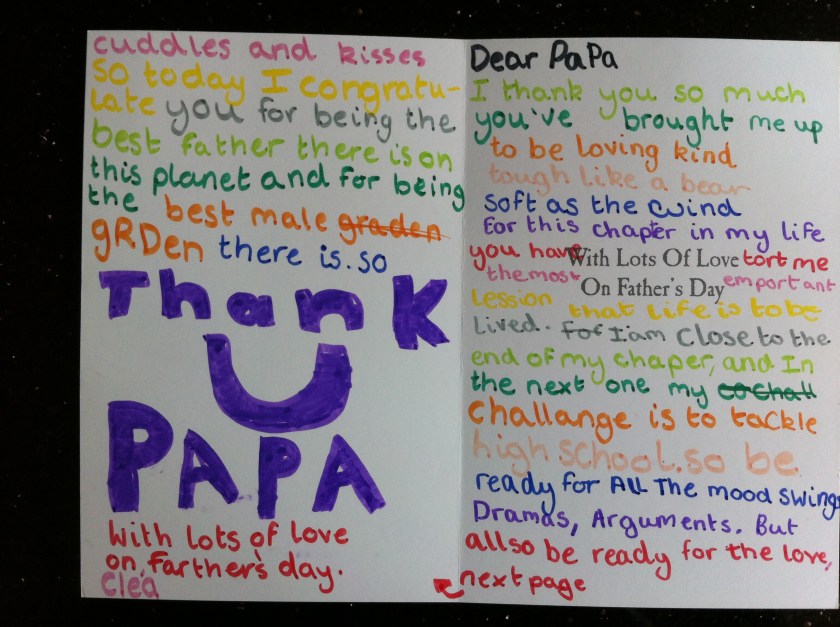 Dear PaPa
I thank you so much
you've brought me up
to be loving kind
tough like a bear
soft as the wind
For this chapter in my life
you have With Lots Of Love tort me
the most On Father's Day emportant
lession that life is to be
Lived. for I'am close to the
end of my chaper, and In
the next one my
challange is to tackle
high school. so be
ready for All The mood swings
Dramas, Arguments. But
allso be ready for the love,
next page
cuddles and kisses
so today I congratu-
late you for being the
best father there is on
this planet and for being
the best male graden
gRDen there is. so
Thank
U
PAPA
With lots of love
on, farther's day.
Clea